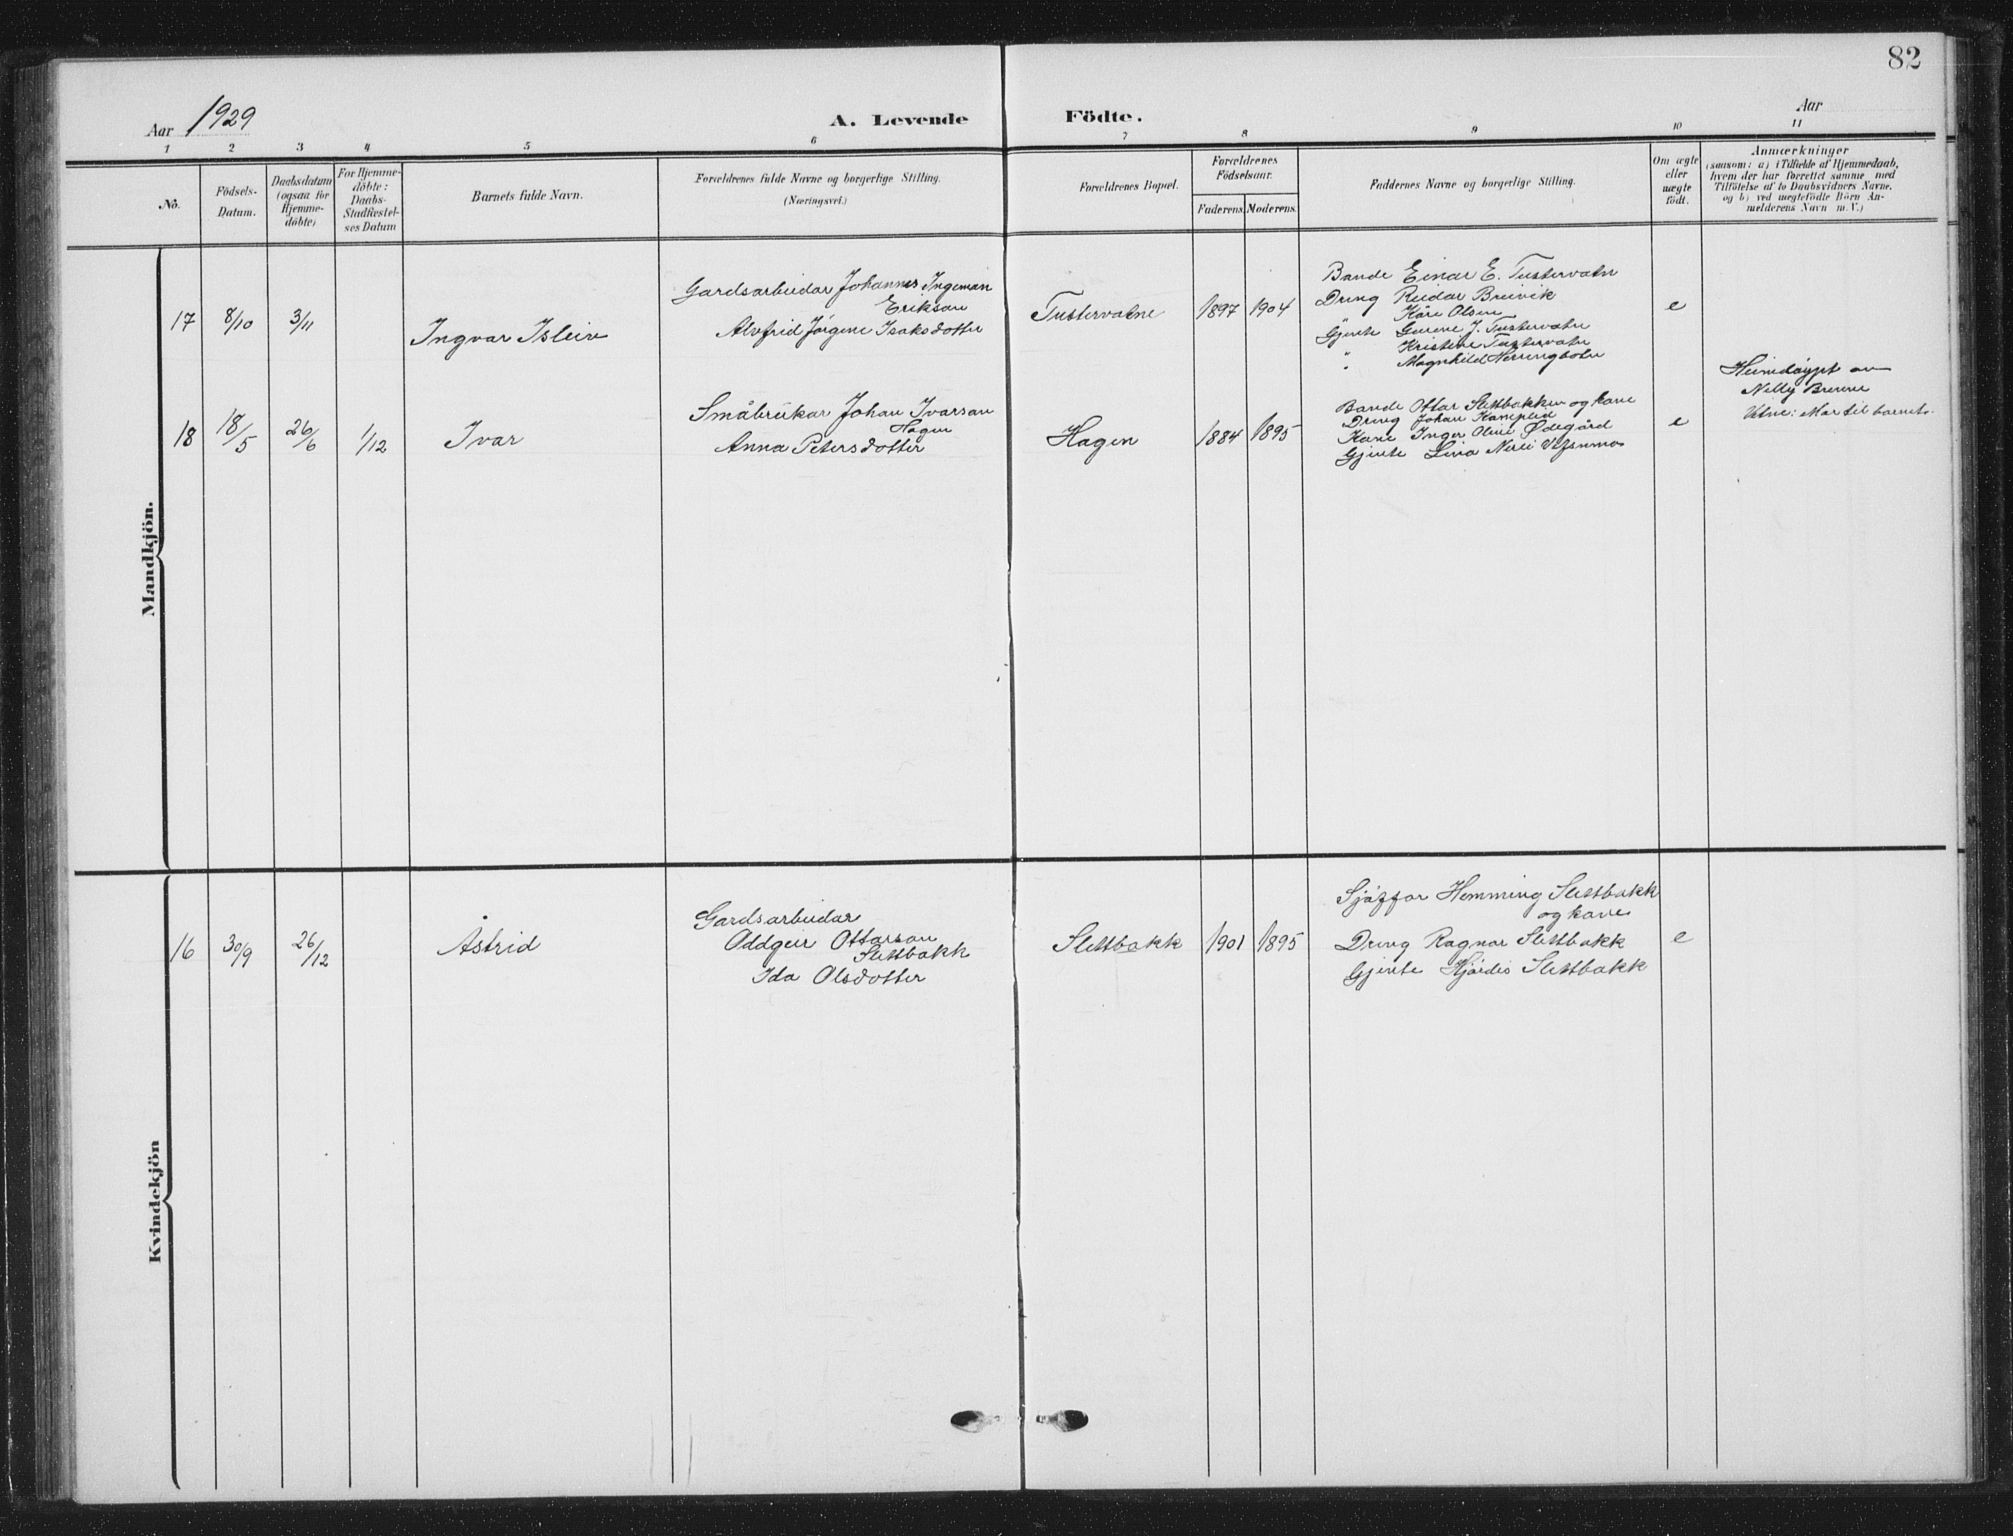 82
Aar 1929
A. Levende Födte.
Aar
1 2 3 4 5 6 7 8 9 10 11
No.
Födsels-
Datum.
Daabsdatum
(ogsaa for
Hjemme-
döbte)
For Hjemme-
döbte:
Daabs-
Stadfæstel-
ses Datum
Barnets fulde Navn.
Forældrenes fulde Navne og borgerlige Stilling.
(Næringsvei.)
Forældrenes Bopæl.
Forældrenes
Födselsaar.
Faderens. Moderens.
Faddernes Navne og borgerlige Stilling.
Om ægte
eller
uægte
födt.
Anmærkninger
(saasom: a) i Tilfælde af Hjemmedaab,
hvem der har forrettet samme med
Tilföielse af to Daabsvidners Navne,
og b) ved uægtefödte Börn An-
melderens Navn m. V.)
Mandkjön.
17 8/10 3/11
Ingvar Isleiv
Gardsarbeidar Johannes Ingeman
Erikson
Alvfrid Jørgine Isaksdotter
Tustervatne
1897 1904
Bonde Einar E. Tustervatn
Dreng Reidar Breivik
Kåre Olsen
Gjente J. Tustervatn
" Kristine Tustervatn
" Magnhild
e
18 18/5 26/6 1/12
Ivar
Småbrukar Johan Ivarson
Hagen
Anna Petersdotter
Hagen
1884 1895
Bonde Ottar Slettbakken og kone
Dreng Johan
Kone Inger Oline Ødegård
Gjente Lina Nerli Vefsnmo
e
Heimedøypt av
Nelly Brenne
Vitne: Mor til barnet.
Kvindekjön
16 30/9 26/12
Åstrid
Gardsarbeidar
Oddgeir Ottarson
Slettbakk
Ida Olsdotter
Slettbakk
1901 1895
Sjåffør Hemming Slettbakk
og kone
Dreng Ragnar Slettbakk
Gjente Hjørdis Slettbakk
e